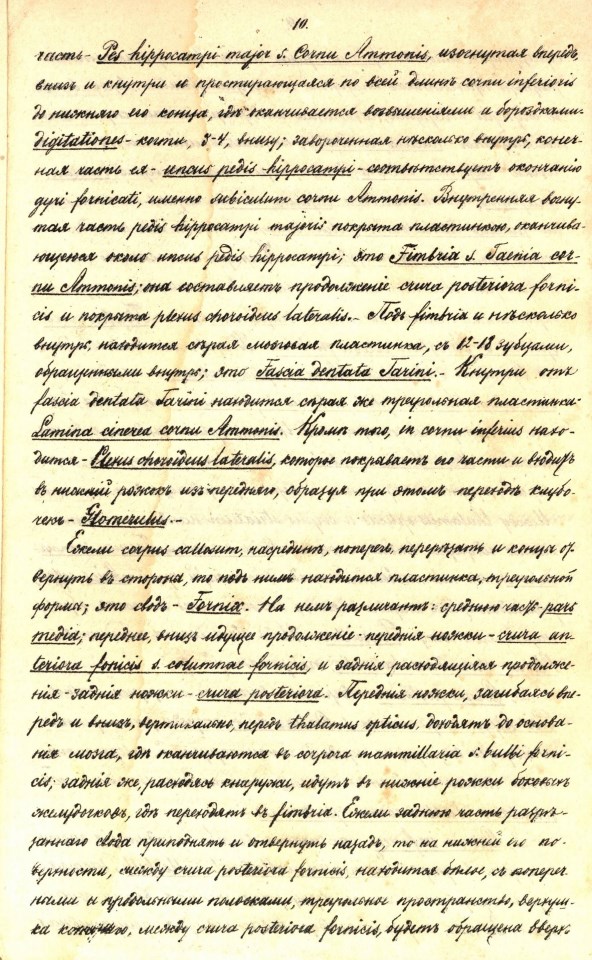 10.
часть - Pes hippocampi major s. Cornu Ammonis, изогнутая впередъ,
внизъ и кнутри и простирающаяся по всей длинѣ cornu inferioris
до нижняго его конца, гдѣ оканчивается возвышеніями и бороздками-
digitationes - когти, 3-4, внизу; завороченная нѣсколько внутрь, конеч-
ная часть ея - uncus pedis hippocampi - соотвѣтствуетъ окончанію
gyri fornicati, именно subiculum cornu Ammonis. Внутренняя вогну-
тая часть pedis hippocampi majoris покрыта пластинкою, оканчива-
ющеюся около uncus pedis hippocampi; это Fimbria s. Taenia cor-
nu Ammonis; она составляетъ продолженіе crura posteriora forni-
cis и покрыта plexus choroideus lateralis. - Подъ fimbria и нѣсколько
внутрь, находится сѣрая мозговая пластинка, съ 12-13 зубцами,
обращенными внутрь; это Fascia dentata Tarini. - Кнутри отъ
fascia dentata Tarini находится сѣрая же треугольная пластинка-
Lamina cinerea cornu Ammonis. Кромѣ того, in cornu inferius нахо-
дится - Plexus choroideus lateralis, которое покрываетъ его части и входитъ
въ нижній рожокъ изъ передняго, образуя при этомъ переходѣ клубо-
чекъ - Glomerulus. -
Ежели corpus callosum, насрединѣ, поперегъ, перерѣзать и концы от-
вернуть въ сторона, то подъ нимъ находится пластинка, треугольной
формы; это сводъ - Fornix. На немъ различаютъ: среднюю часть - pars
media; переднее, внизъ идущее продолженіе - переднія ножки - crura an-
teriora fonicis s. columnae fornicis, и заднія расходящіяся продолже-
нія - заднія ножки - crura posteriora. Переднія ножки, загибаясь впе-
редъ и внизъ, вертикально, передъ thalamus opticus, доходятъ до основа-
нія мозга, гдѣ оканчиваются въ corpora mammillaria s. bulbi forni-
cis; заднія же, расходясь кнаружи, идутъ въ нижніе рожки боковыхъ
желудочковъ, гдѣ переходятъ въ fimbria. Ежели заднюю часть разрѣ-
заннаго свода приподнять и отвернуть назадъ, то на нижней его по-
верхности, между crura posteriora fornicis, находится бѣлое, съ попереч
ными и продольными полосками, треугольное пространство, вершуш-
ка котораго, между crura posteriora fornicis, будетъ обращена вверхъ